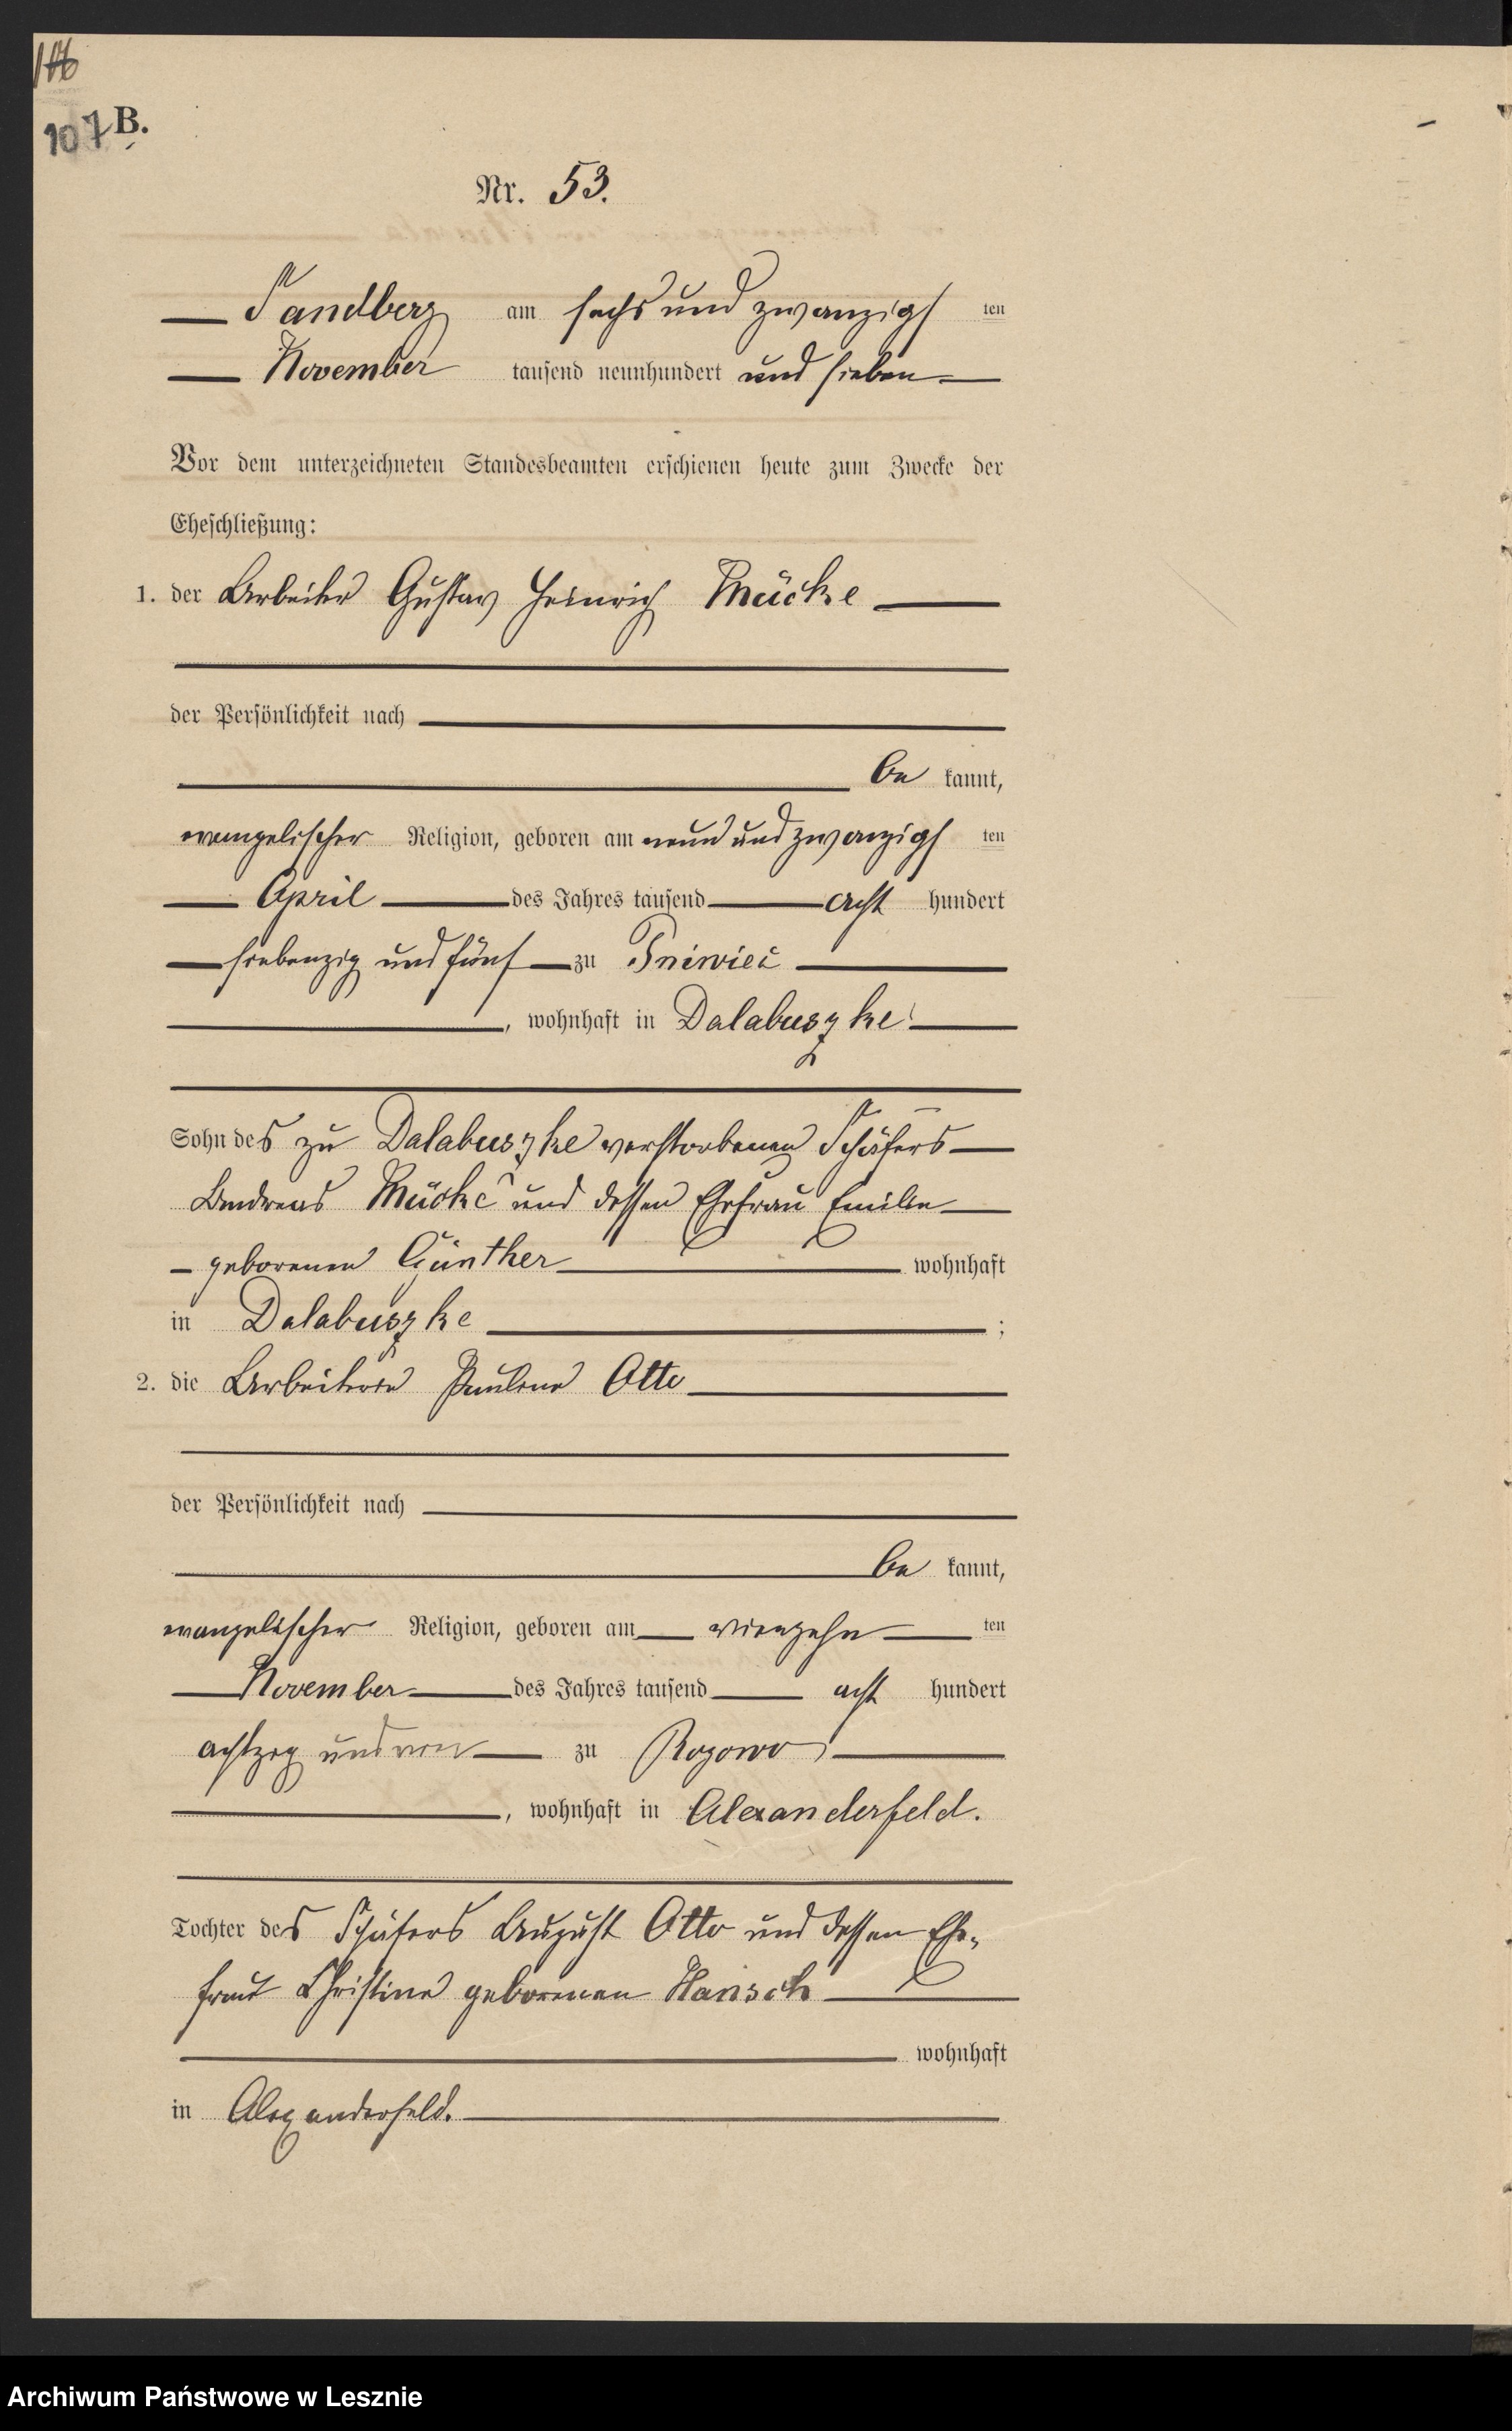 107 B.
Nr. 53.
Sandberg am sechs und zwanzigs ten
November tausend neunhundert und sieben
Vor dem unterzeichneten Standesbeamten erschienen heute zum Zwecke der
Eheschließung:
1. der Arbeiter Gustav Heinrich Mücke
der Persönlichkeit nach
be kannt,
evangelischer Religion, geboren am neun und zwanzigs ten
April des Jahres tausend acht hundert
siebenzig und fünf zu
, wohnhaft in Dalabuszke
Sohn des zu Dalabuszke verstorbenen Schäfers
Andreas Mücke und dessen Ehefrau Emilie
geborenen Günther wohnhaft
in Dalabuszke ;
2. die Arbeiterin Pauline Otto
der Persönlichkeit nach
be kannt,
evangelischer Religion, geboren am vierzehn ten
November des Jahres tausend acht hundert
achtzig und vier zu Rogowo
, wohnhaft in Alexanderfeld.
Tochter des Schäfers August Otto und dessen Ehe-
frau Christine geborenen Hansch
wohnhaft
in Alexanderfeld.
Archiwum Państwowe w Lesznie